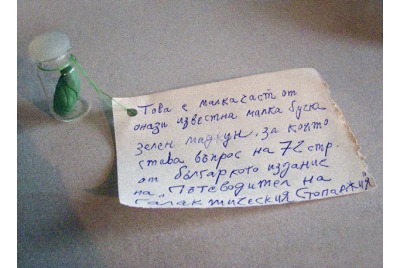 Това е малка част от
онази известна малка бучка
зелен мадкун, за която
става въпрос на 72 стр.
от българкото издание
на „Пътеводител на
Галактическия Стопаджия